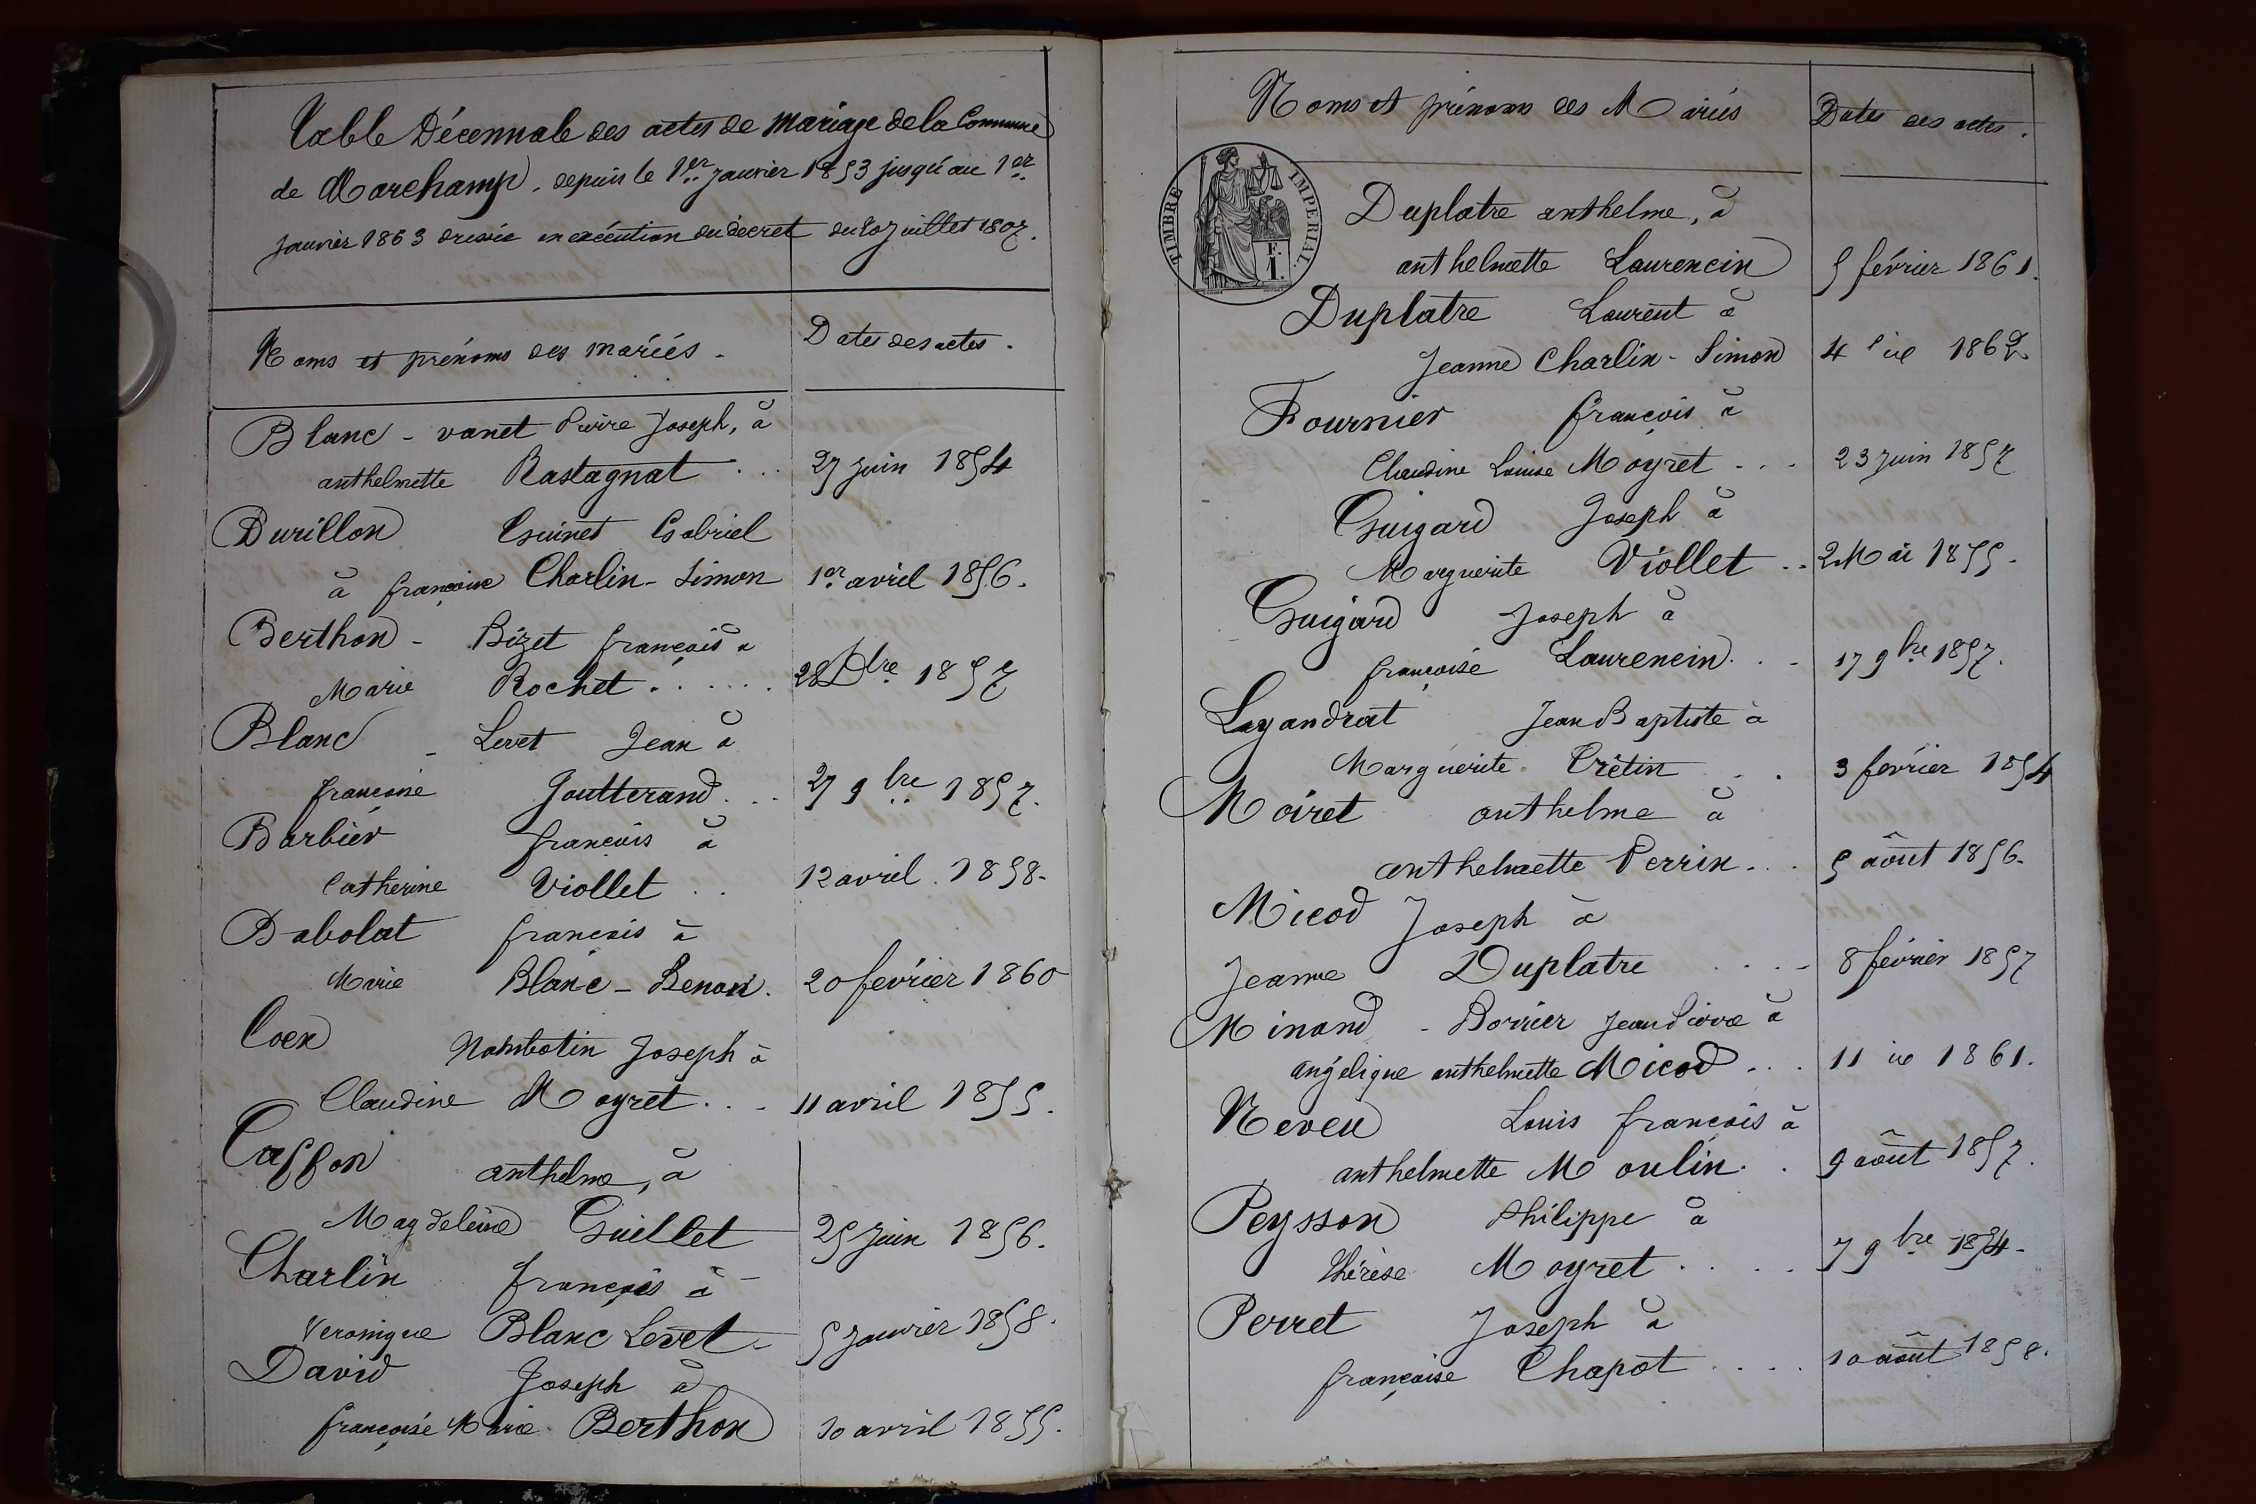 Table Décennale des actes de mariage de la Commune
de Marchamp, depuis le 1er janvier 1853 jusqu'au 1er
janvier 1863 dressée en exécution du décret du 20 juillet 1807.
Noms et prénoms des mariés. Dates des actes.
Blanc - vanet Pierre Joseph, à
anthelmette Rastagnat ... 27 juin 1854
Burillon Guinet Gabriel
à françoise Charlin-Simon 1er avril 1856.
Berthon - Bizet françois à
Marie Rochet ...... 28 Xbre 1857
Blanc - Levet Jean à
françoise Goutterand ... 27 9bre 1857.
Barbier françois à
Catherine Viollet .. 12 avril 1858.
Babolat françois à
Marie Blanc-Benon. 20 février 1860
Coen Nambotin Joseph à
Claudine Moyret ... 11 avril 1855.
Casson anthelme, à
Magdeleine Guillet 25 juin 1856.
Charlin françois à
Veronique Blanc Levet 5 janvier 1858.
David Joseph à
françoise Marie Berthon 10 avril 1855.
Noms et prénoms des Mariés Dates des actes.
TIMBRE IMPERIAL.
E.
1.
Duplatre anthelme, à
anthelmette Laurencin 5 février 1861.
Duplatre Laurent à
Jeanne Charlin-Simon 4 1862
Fournier françois à
Claudine Louise Moyret ... 23 juin 1857
Guigard Joseph à
Marguerite Viollet .. 2 Mai 1855.
Guigard Joseph à
françoise Laurencin ... 17 9bre 1857.
Layandrat Jean Baptiste à
Marguerite Crétin .. 3 février 1854
Moiret anthelme à
anthelmette Perrin ... 5 août 1856.
Micod Joseph à
Jeanne Duplatre .... 8 février 1857
Minand - Borrier Jean Pierre à
angélique anthelmette Micod ... 11 1861.
Neveu Louis françois à
anthelmette Moulin .. 9 août 1857.
Peysson Philippe à
thérèse Moyret .... 7 9bre 1854.
Perret Joseph à
françoise Chapot .... 10 août 1858.